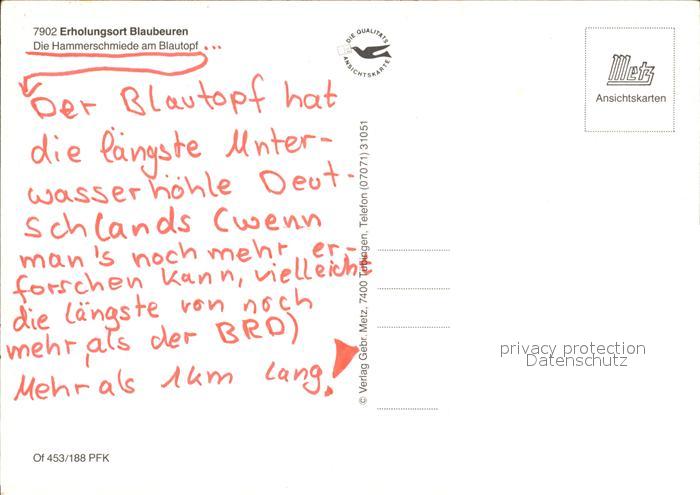 7902 Erholungsort Blaubeuren
Die Hammerschmiede am Blautopf ...
Der Blautopf hat
die längste Unter-
wasserhöhle Deut-
schlands (wenn
man's noch mehr er-
forschen kann, vielleicht
die längste von noch
mehr, als der BRD)
Mehr als 1km lang!
Of 453/188 PFK
DIE QUALITÄTS
ANSICHTSKARTE
© Verlag Gebr. Metz, 7400 Tübingen, Telefon (07071) 31051
Metz
Ansichtskarten
privacy protection
Datenschutz